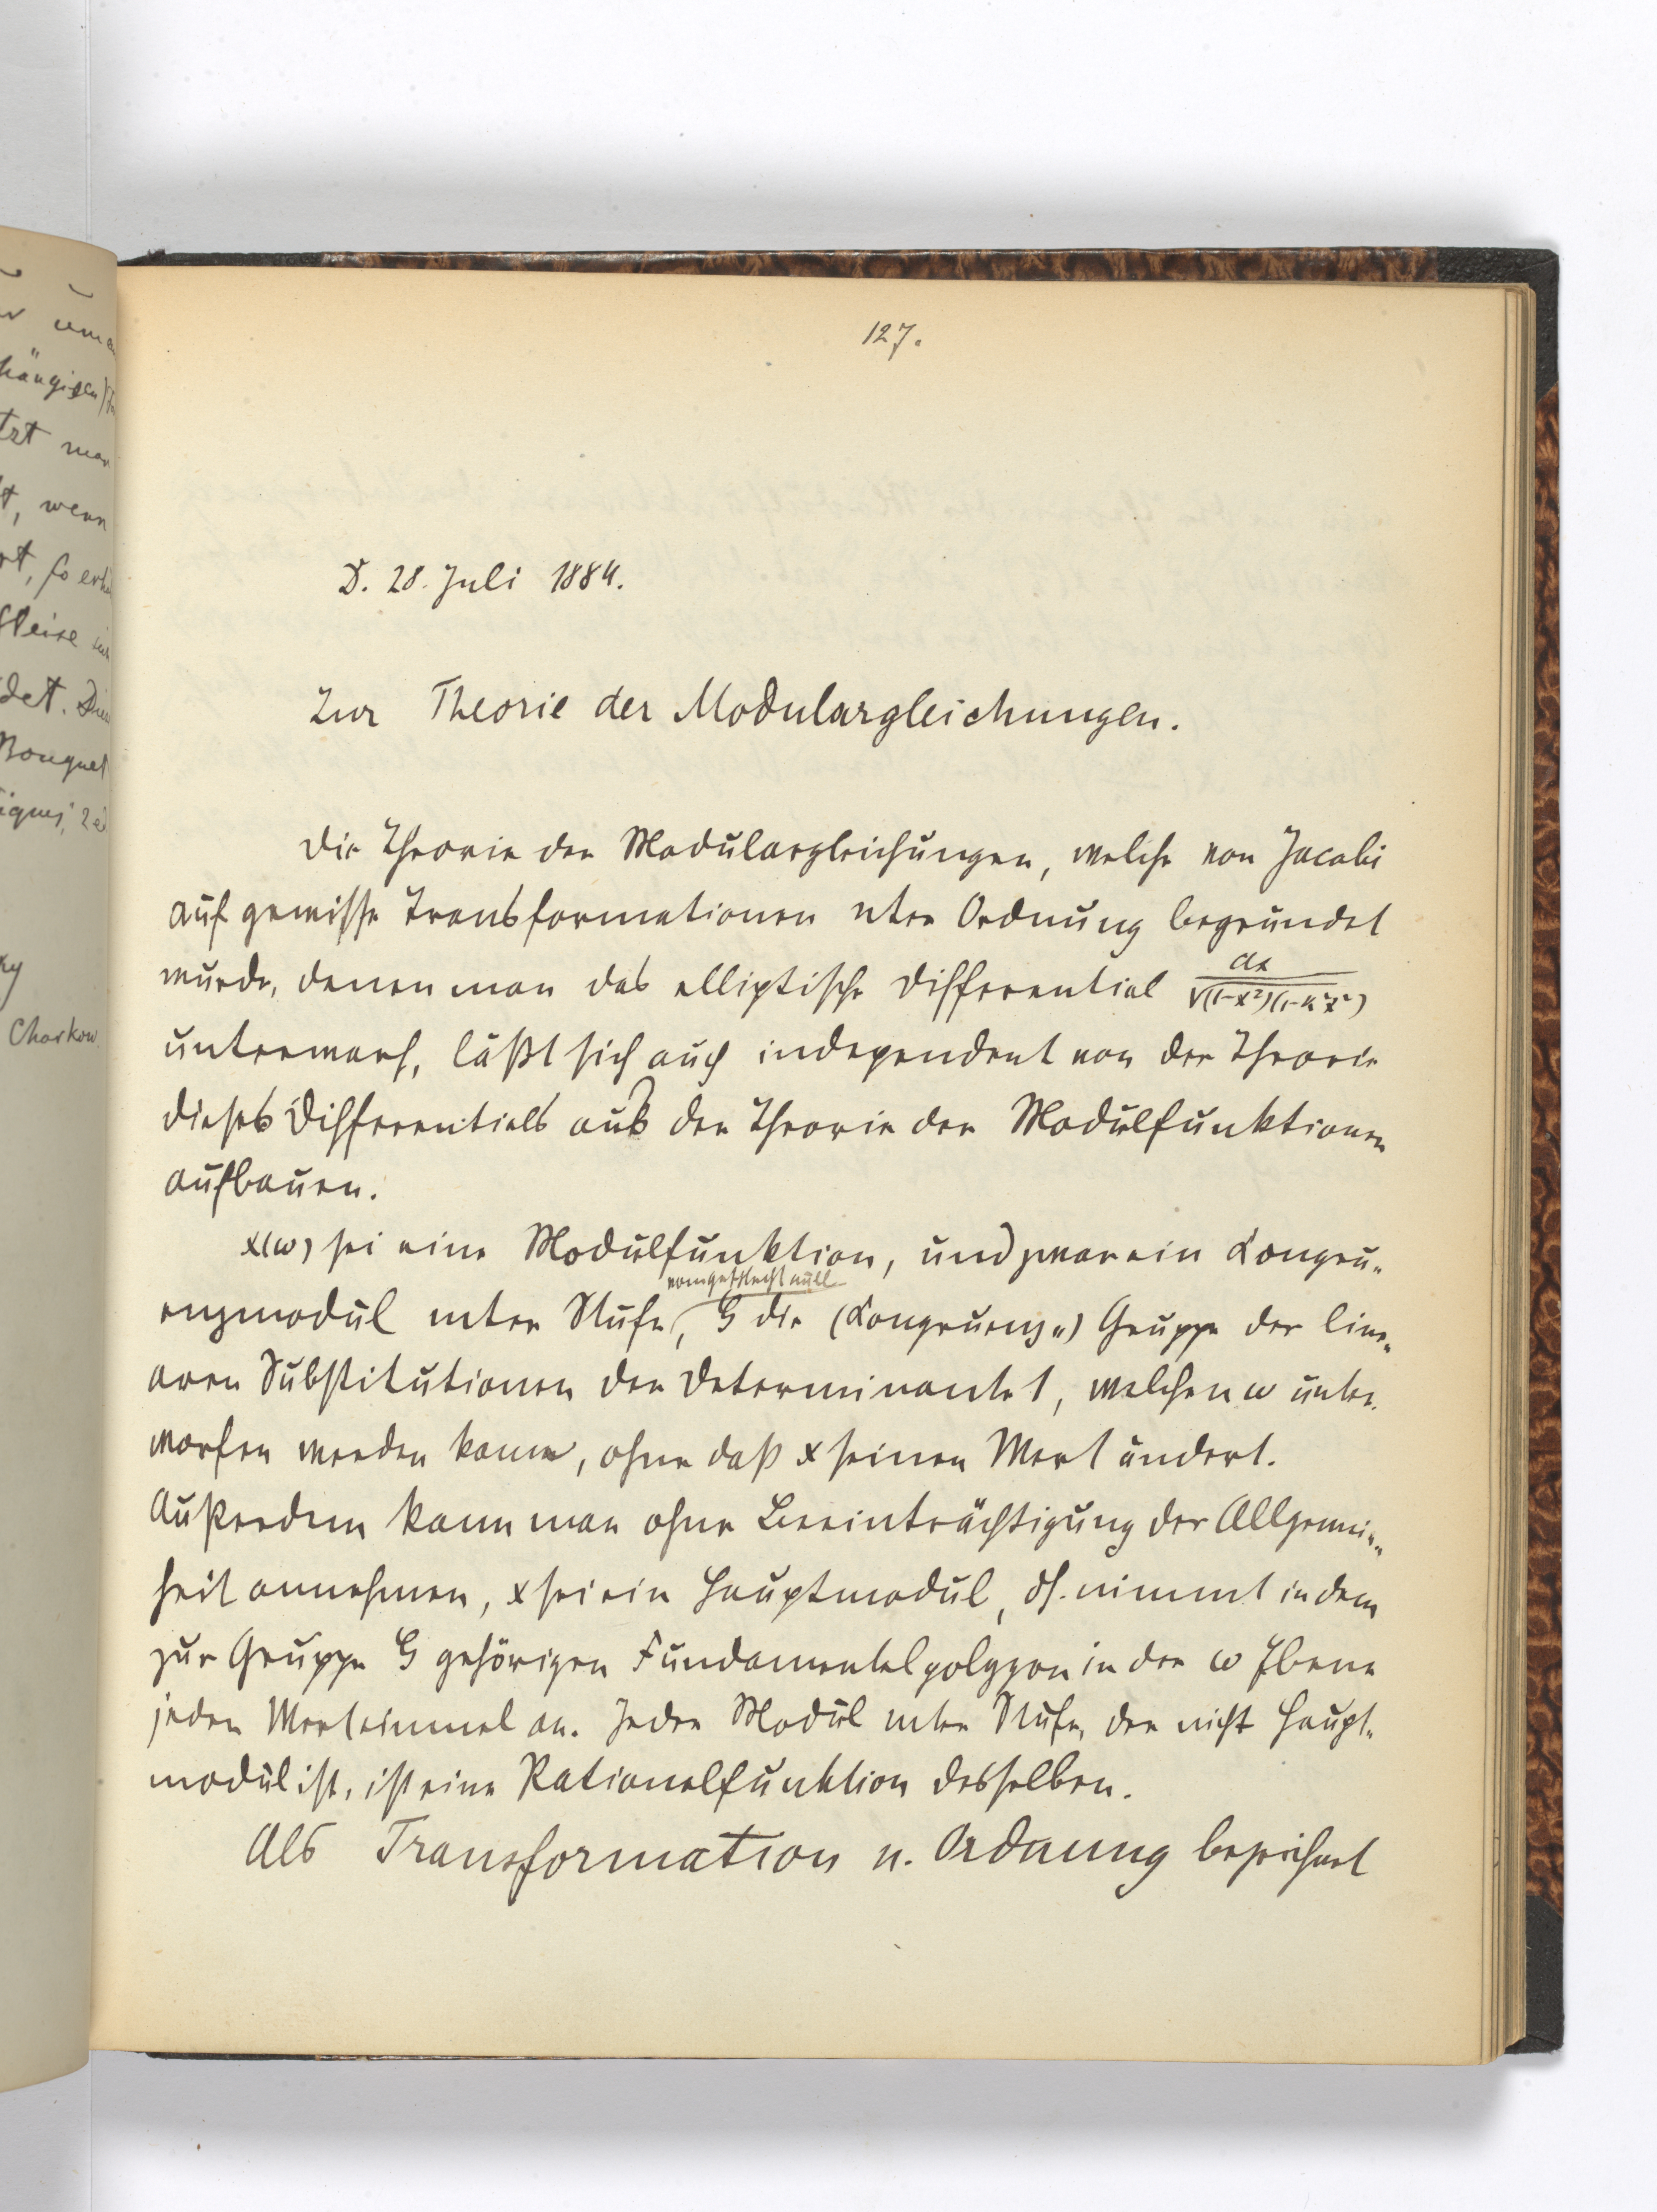 127.
D. 28. Juli 1884.
Zur Theorie der Modulargleichungen.
Die Theorie der Modulargleichungen, welche von Jacobi
auf gewisse Transformationen nter Ordnung begründet
wurde, denen man das elliptische Differential dx/√(1-x²)(1-k²x²)
unterwarf, läßt sich auch independent von der Theorie
dieses Differentials aus der Theorie der Modulfunktionen
aufbauen.
x(ω) sei eine Modulfunktion, und zwar ein Kongru„
vom Geschlecht null
enzmodul mter Stufe, G die (Kongruenz„) Gruppe der line„
aren Substitutionen der Determinante 1, welchen ω unter„
worfen werden kann, ohne daß x seinen Wert ändert.
Außerdem kann man ohne Beeinträchtigung der Allgemein„
heit annehmen, x sei ein Hauptmodul, dh. nimmt in dem
zur Gruppe G gehörigen Fundamentalpolygon in der ω Ebene
jeden Wert einmal an. Jeder Modul mter Stufe, der nicht Haupt„
modul ist, ist eine Rationalfunktion desselben.
Als Transformation n. Ordnung bezeichnet
um
hängigen
tzt man
t, wenn
rt, so erhä
Weise
det. Die
Bouquet
iques, 2e
ky
Charkow